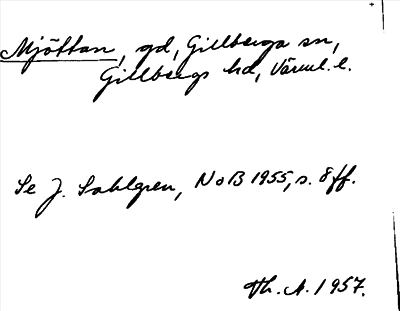 Mjöttan, gd, Gillberga sn,
Gillbergs hd, Värml. l.
Se J. Sahlgren, NoB 1955, s. 8 ff.
Th. A. 1957.